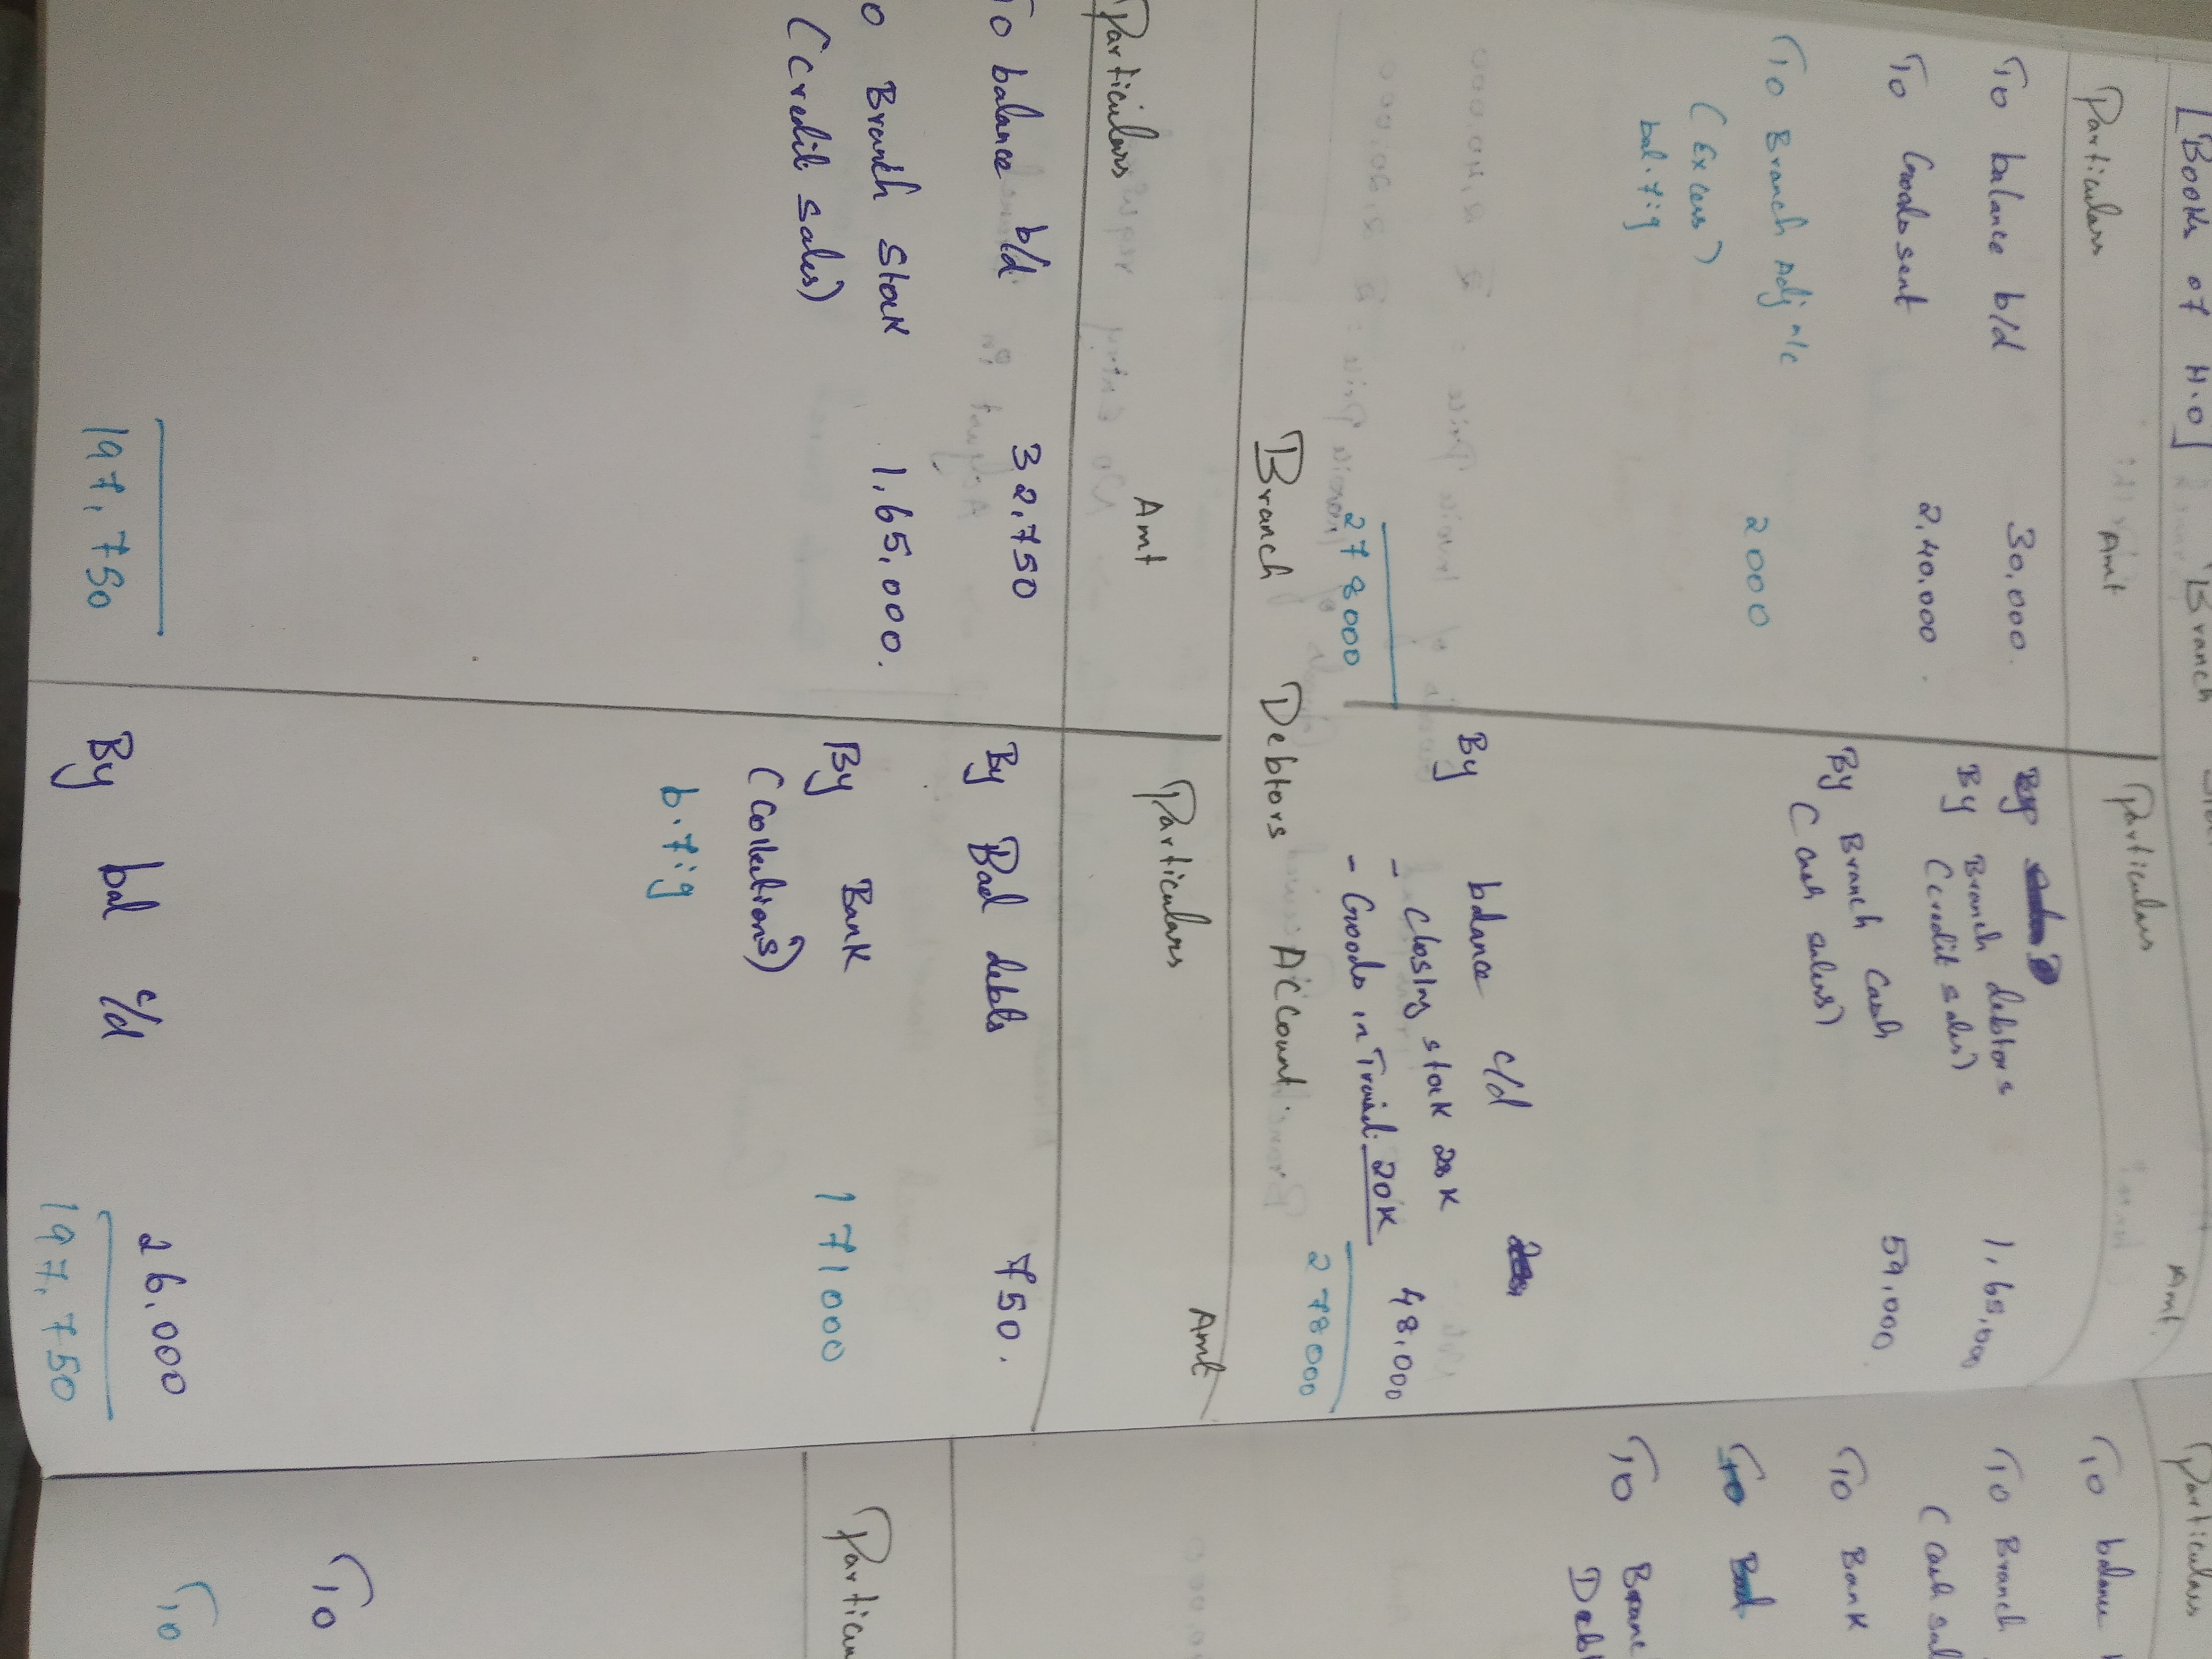 [Books of H.O] Branch
Particulars Amt Particulars Amt.
To balance b/d 30,000. By
To Goods sent 2,40,000. By Branch debtors 1,65,000
(Credit sales)
To Branch Adj a/c 2000 By Branch Cash 59,000.
(Excess) (Cash sales)
bal.fig
By balance c/d
- closing stock 28K
- Goods in Transit. 20K 48,000
278000 278000
Branch Debtors Account.
Particulars Amt Particulars Amt
To balance b/d 32,750 By Bad debts 750.
o Branch Stock 1,65,000. By Bank 171000
(Credit sales) (Collections)
b.fig
By bal c/d 26,000
197,750 197,750
Particulars
To balance
To Branch
(Cash sal
To Bank
To Bad
To Branc
Deb
Particu
To
To